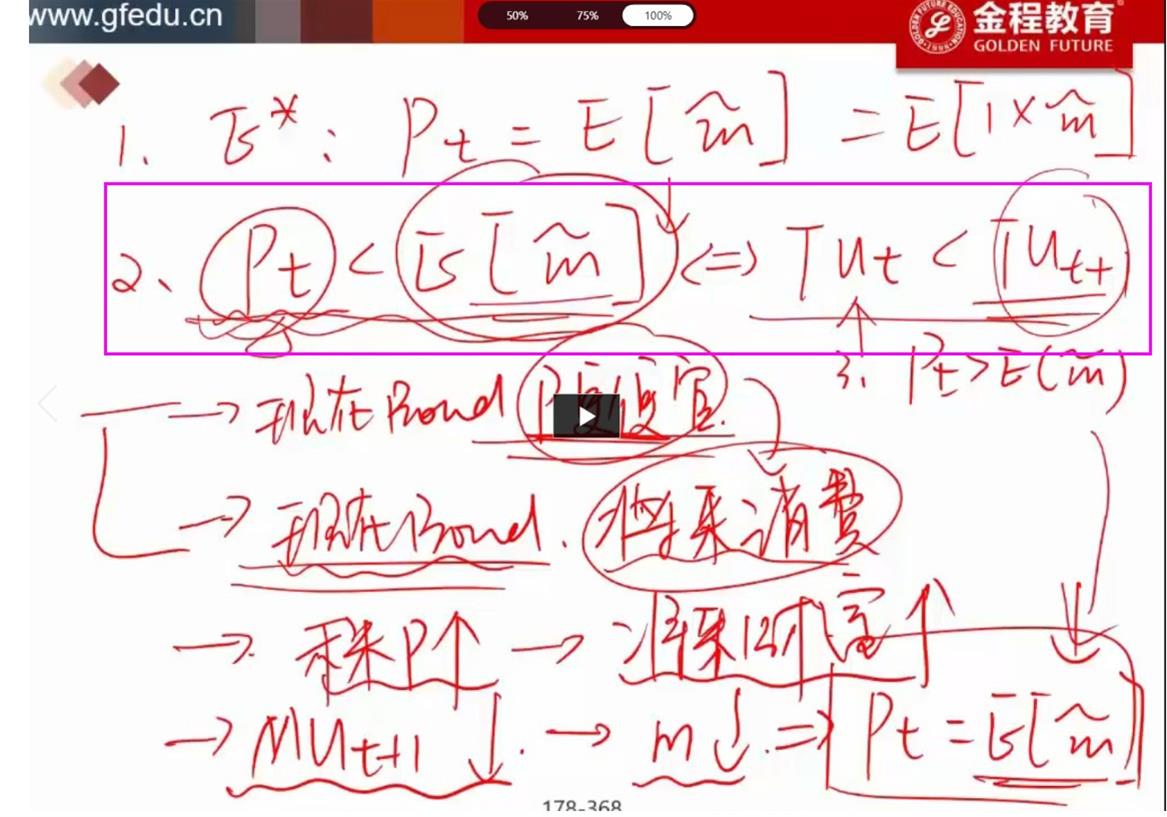 www.gfedu.cn
50% 75% 100%
金程教育
GOLDEN FUTURE
1. E*: Pt = E[m̃] = E[1×m̃]
2、Pt < E[m̃] <=> TUt < TUt+
3. Pt>E(m̃)
→ 现在Bond P变便宜.
→ 现在Bond. 将来消费
→. 未来P↑ → 将来财富↑
→ MUt+1 ↓. → m↓. => Pt = E[m̃]
178-368